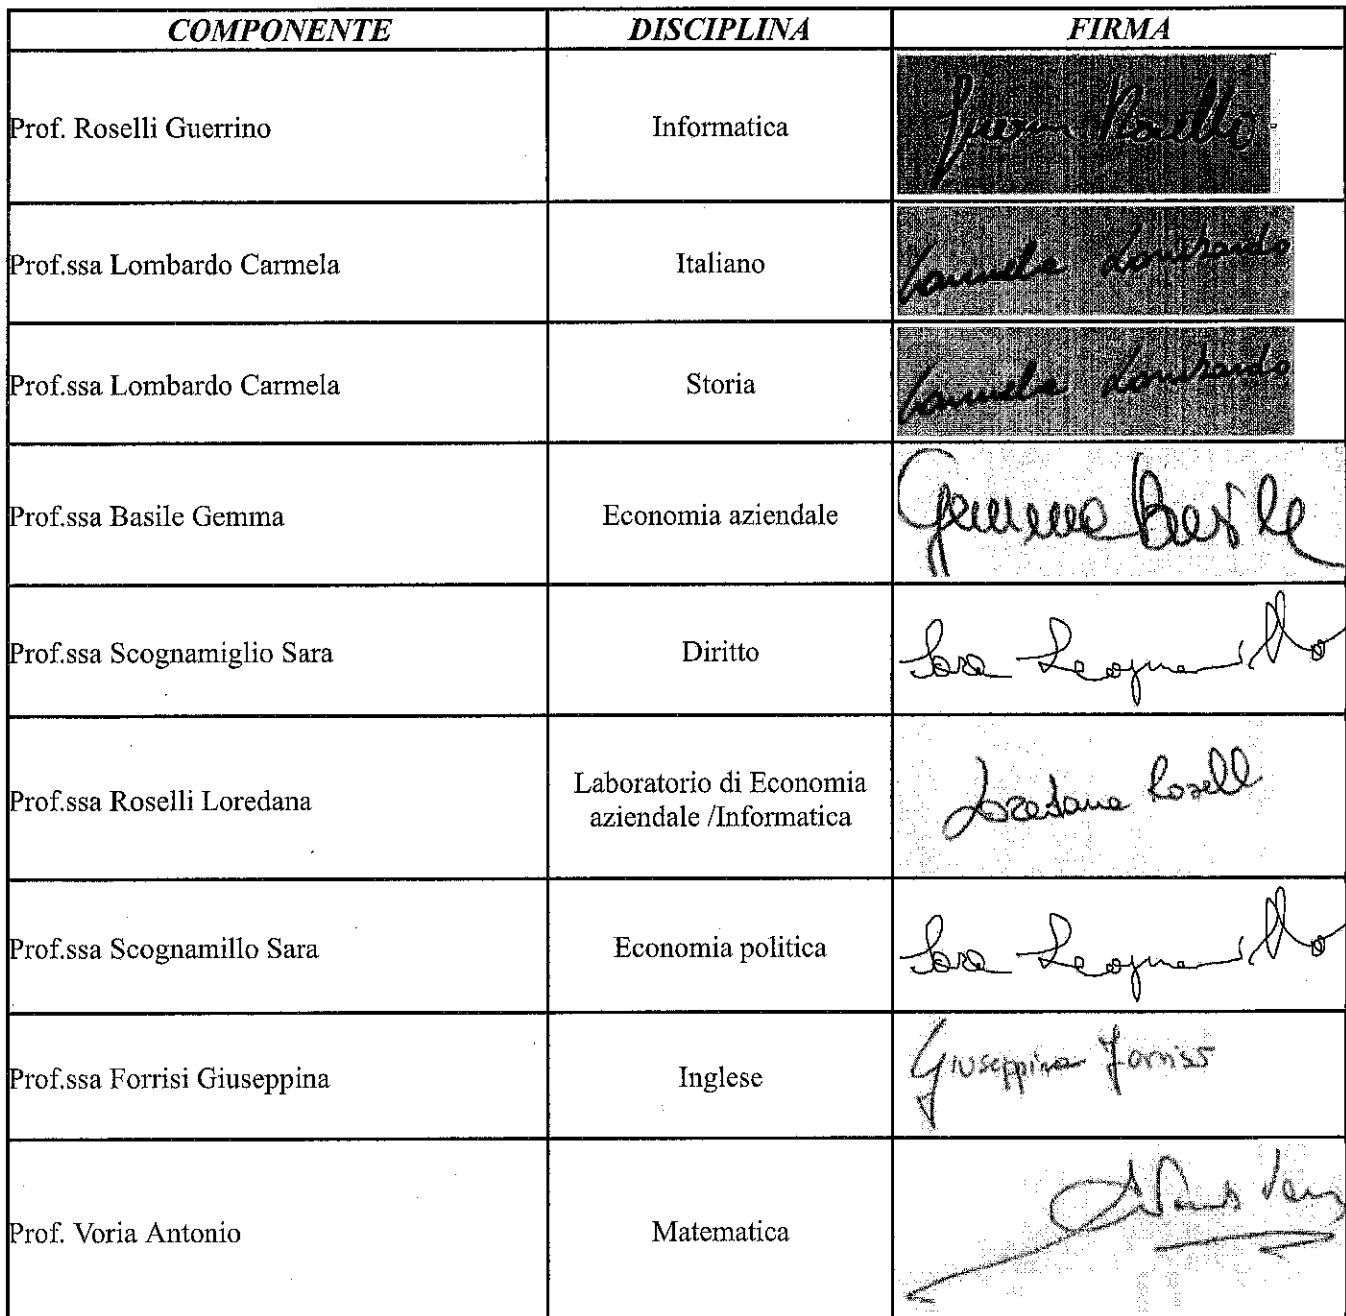 COMPONENTE DISCIPLINA FIRMA
Prof. Roselli Guerrino Informatica
Prof.ssa Lombardo Carmela Italiano Carmela Lombardo
Prof.ssa Lombardo Carmela Storia Carmela Lombardo
Prof.ssa Basile Gemma Economia aziendale Gemma Basile
Prof.ssa Scognamiglio Sara Diritto Sara Scognamillo
Prof.ssa Roselli Loredana Laboratorio di Economia
aziendale /Informatica Loredana Roselli
Prof.ssa Scognamillo Sara Economia politica Sara Scognamillo
Prof.ssa Forrisi Giuseppina Inglese Giuseppina Forrisi
Prof. Voria Antonio Matematica